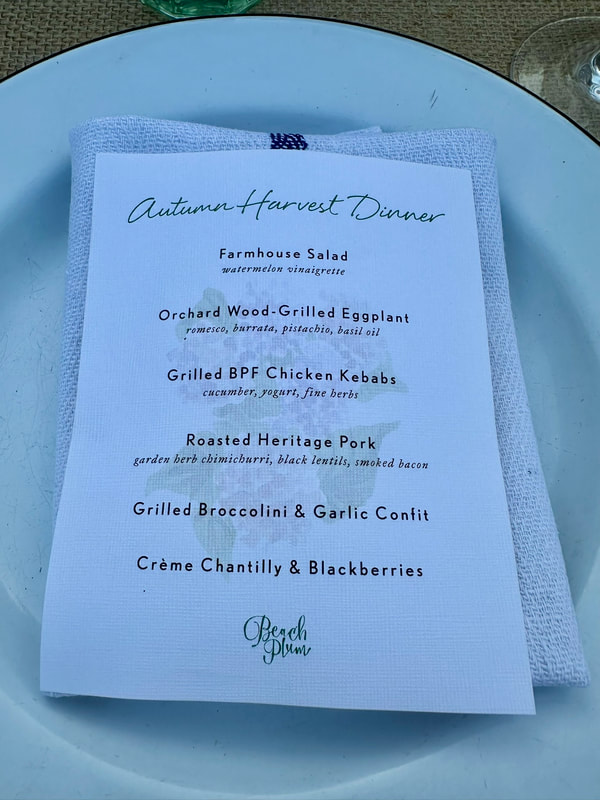 Autumn Harvest Dinner
Farmhouse Salad
watermelon vinaigrette
Orchard Wood-Grilled Eggplant
romesco, burrata, pistachio, basil oil
Grilled BPF Chicken Kebabs
cucumber, yogurt, fine herbs
Roasted Heritage Pork
garden herb chimichurri, black lentils, smoked bacon
Grilled Broccolini & Garlic Confit
Crème Chantilly & Blackberries
Beach
Plum